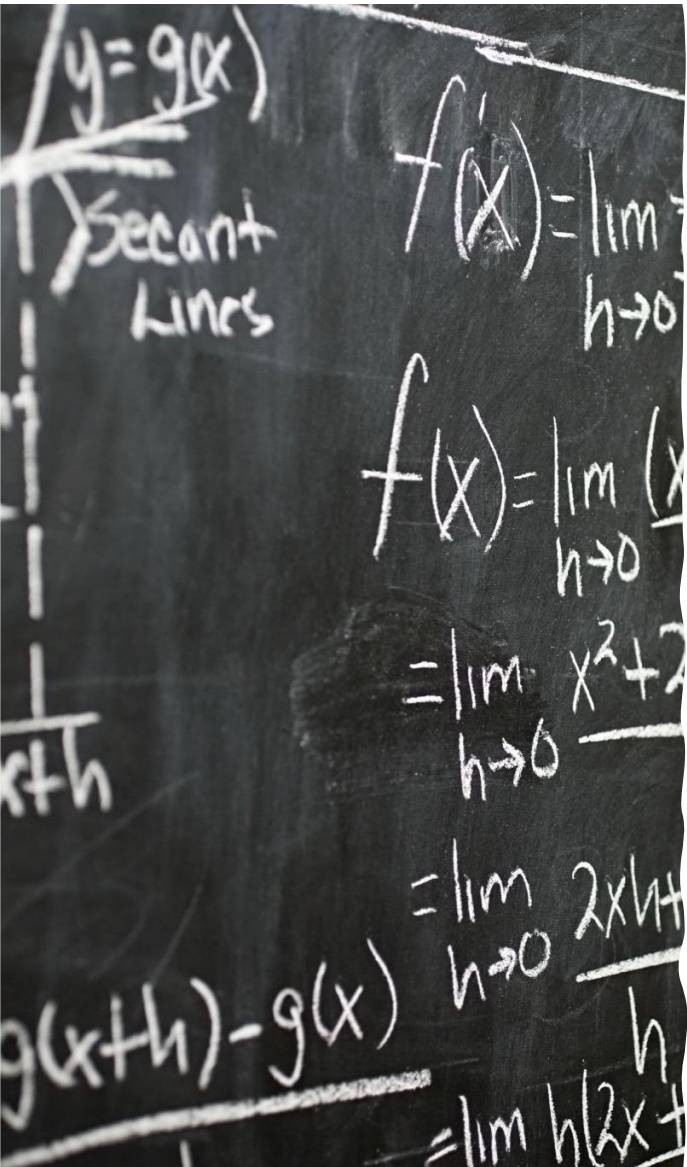 y=g(x)
Secant
Lines
x+h
g(x+h)-g(x)
f'(x)=lim
h→0
f(x)=lim (x
h→0
=lim x²+2
h→0
=lim 2xh+
h→0 h
=lim h(2x+